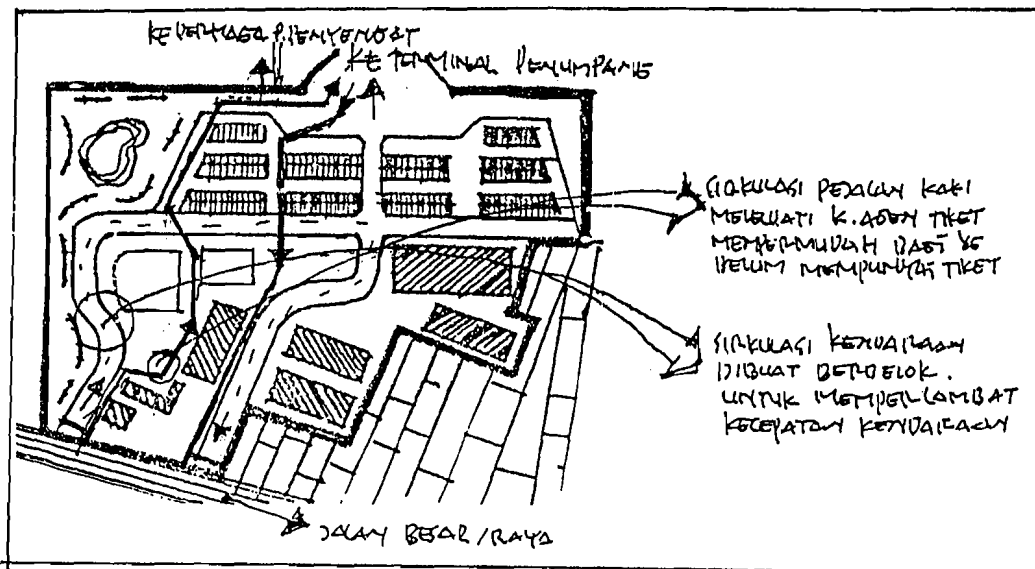 KE DERMAGA PENYENGAT
KE TERMINAL PENUMPANG
SIRKULASI PEJALAN KAKI
MELEWATI K. AGEN TIKET
MEMPERMUDAH BAGI YG
BELUM MEMPUNYAI TIKET
SIRKULASI KENDARAAN
DIBUAT BERBELOK.
UNTUK MEMPERLAMBAT
KECEPATAN KENDARAAN
JALAN BESAR/RAYA